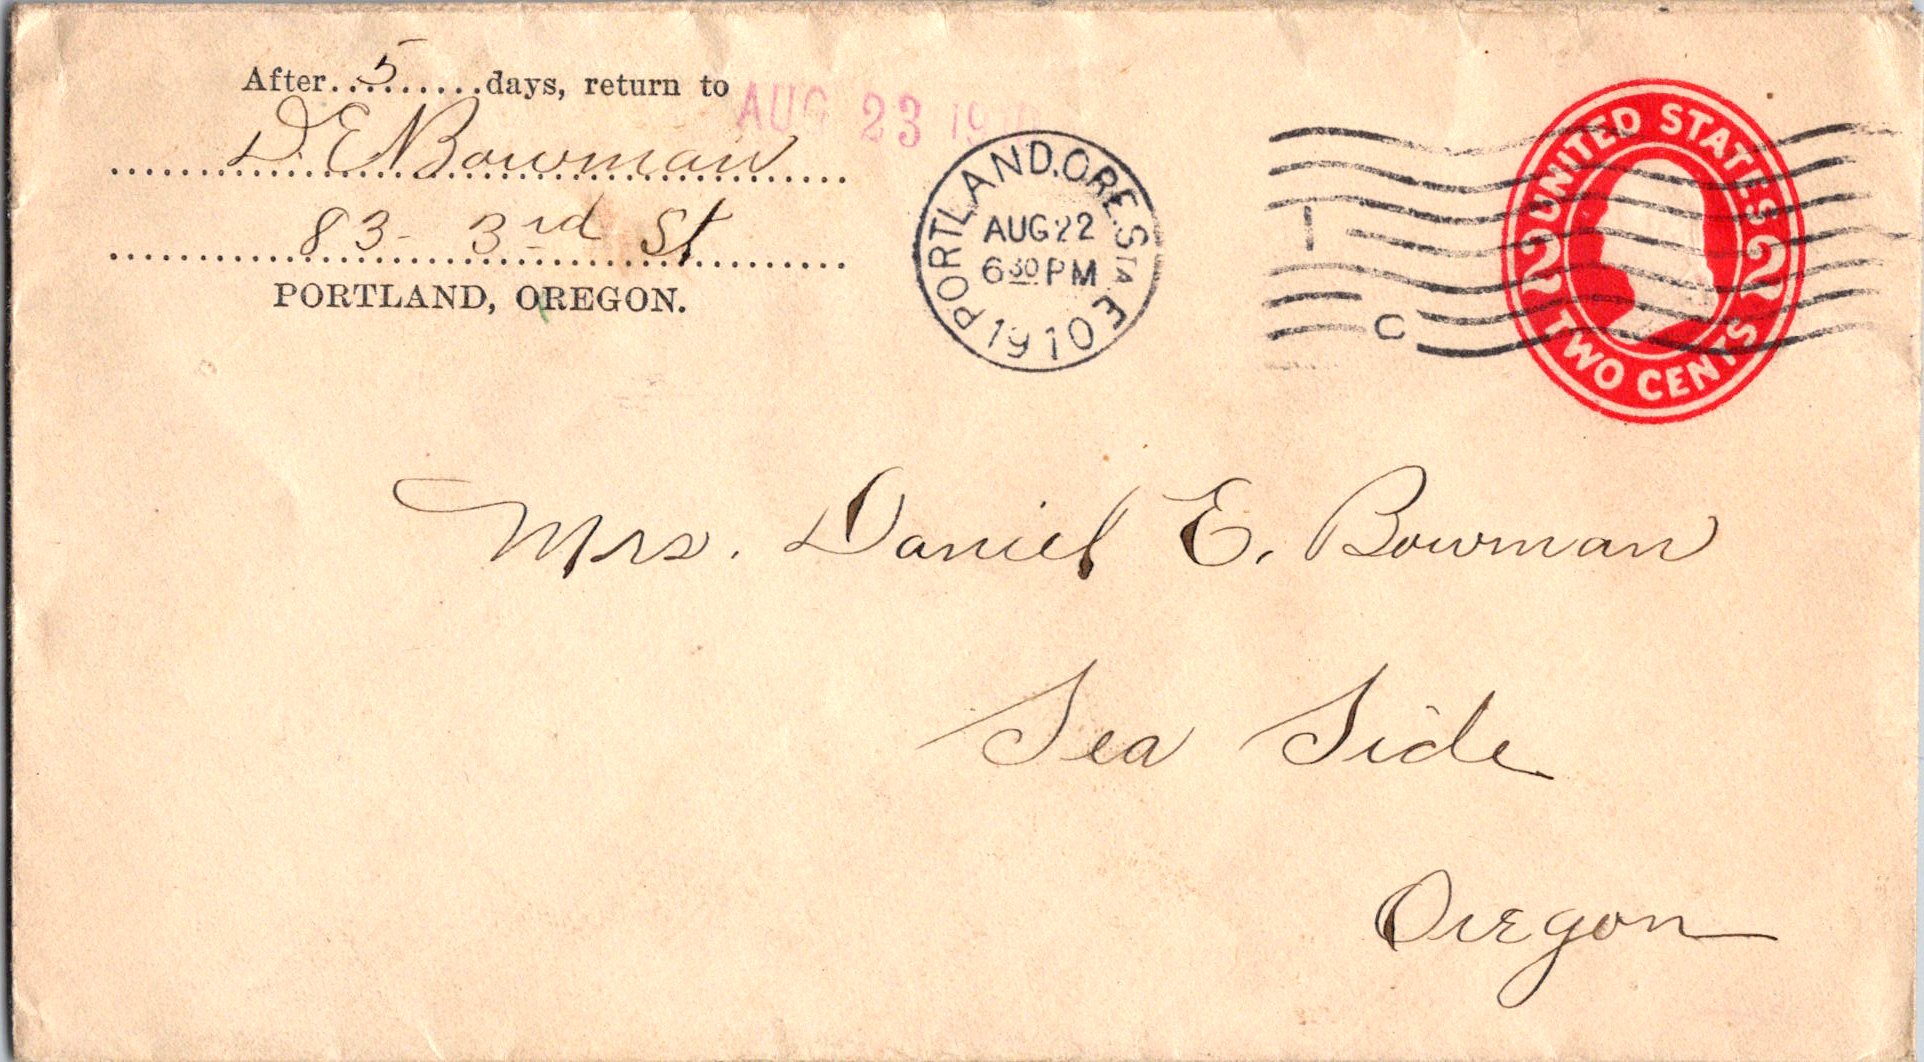 After..5.......days, return to
D. E. Bowman
83- 3rd St
PORTLAND, OREGON.
AUG 23 1910
PORTLAND, ORE. STA. E
AUG 22
6 30 PM
1910
1
C
UNITED STATES
2 2
TWO CENTS
Mrs. Daniel E. Bowman
Sea Side
Oregon